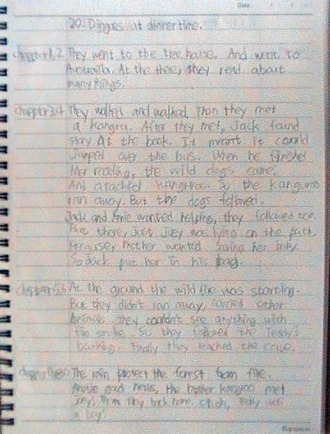 20. Dingoes at dinner time.
chapter1,2 They went to the tree house. And went to
Australia. At the there, they read about
many things.
chapter3,4 They walked and walked. Then they met
a kangroo. After they met, Jack found
story At the book. It meant it could
jumped over the bus. When he finished
reading, the wild dogs came.
And atacked kangroos. So the kangaroo
ran away. But the dogs followed.
Jack and Annie wanted helping, they followed too.
But there, Just Joey was lying on the path.
Because, mother wanted saving her baby.
So Jack put her in his bag.
chapter5,6 At the ground the wild fire was starting.
But they didn't ran away, other
Animals. They couldn't see anything with
the smoke. So they followed the Teddy's
barking. Finally they reached the cave.
The rain protect the forest from fire.
good news, the mother kangroo met
Joey. they back home. Teddy was
a boy!